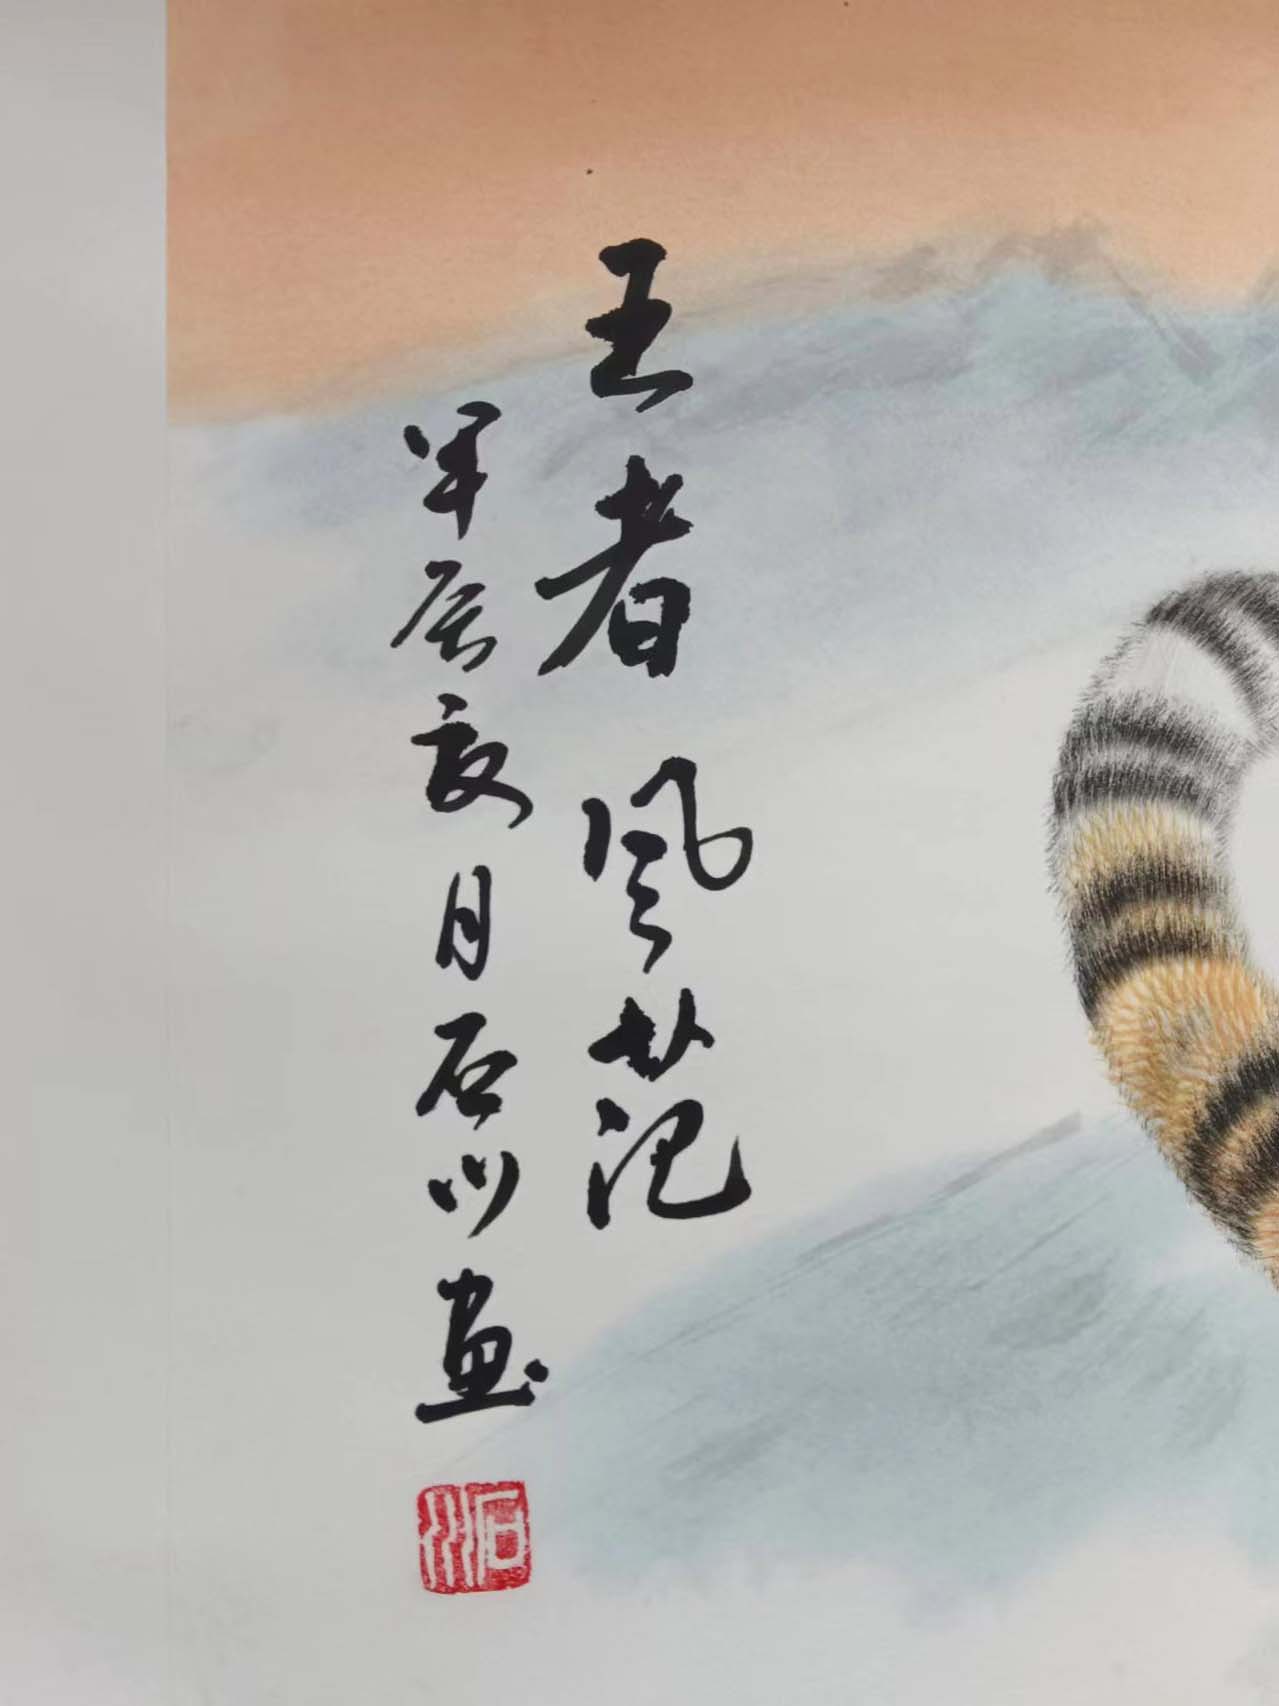 王者风范
甲辰夏月石川画
石川